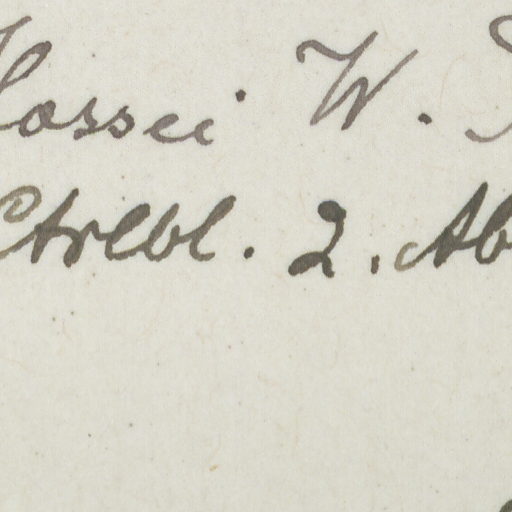 Hossei W.
Ctrlbl. 2. Ab